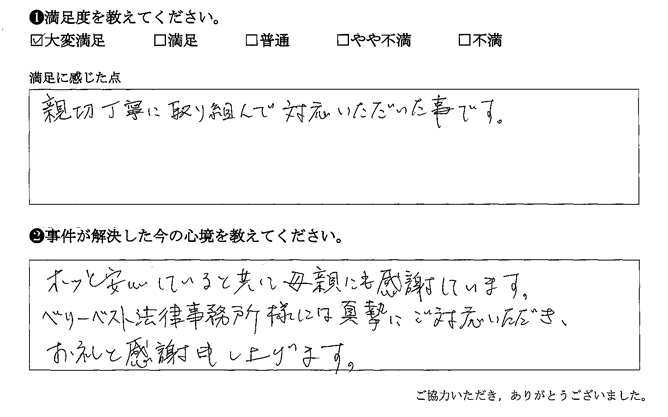 ❶満足度を教えてください。
☑大変満足 □満足 □普通 □やや不満 □不満
満足に感じた点
親切丁寧に取り組んで対応いただいた事です。
❷事件が解決した今の心境を教えてください。
ホッと安心していると共に母親にも感謝しています。
ベリーベスト法律事務所様には真摯にご対応いただき、
お礼と感謝申し上げます。
ご協力いただき，ありがとうございました。